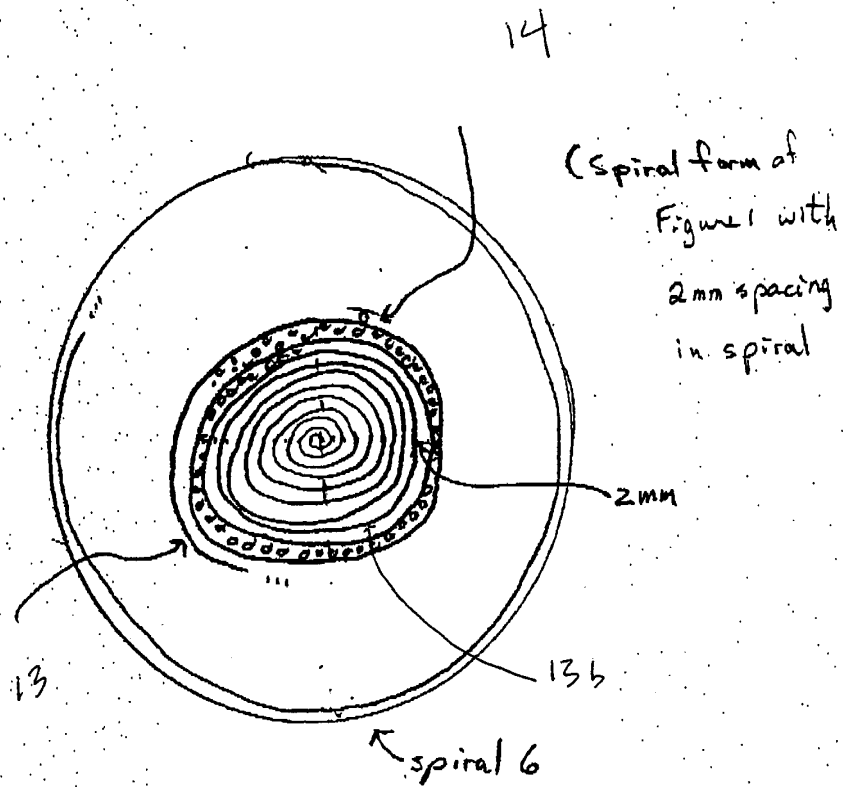 14
(spiral form of
Figure 1 with
2mm spacing
in spiral
2mm
13
13b
spiral 6